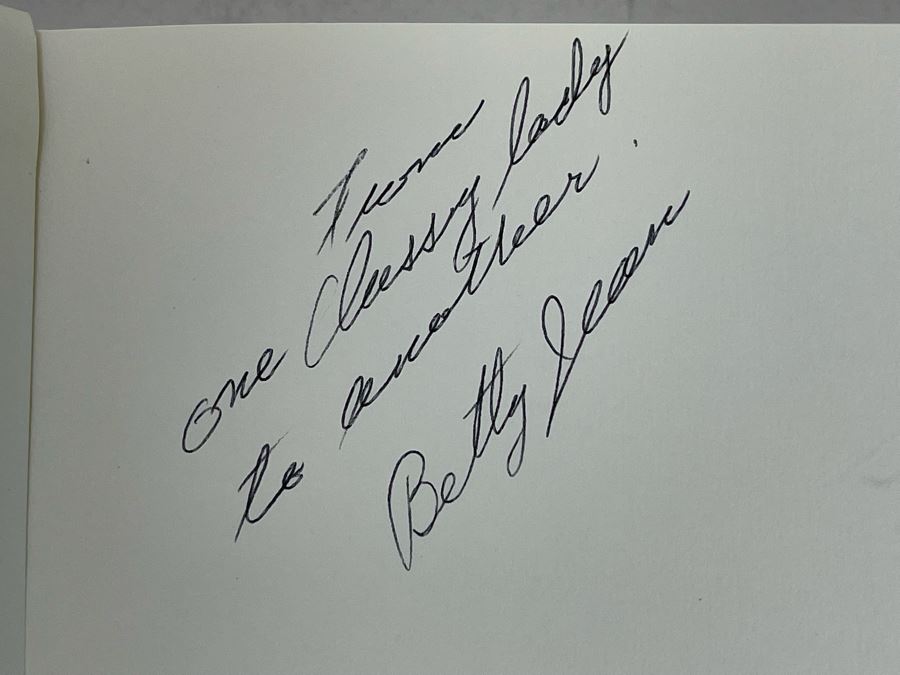 From
one Classy lady
to another.
Betty Jean